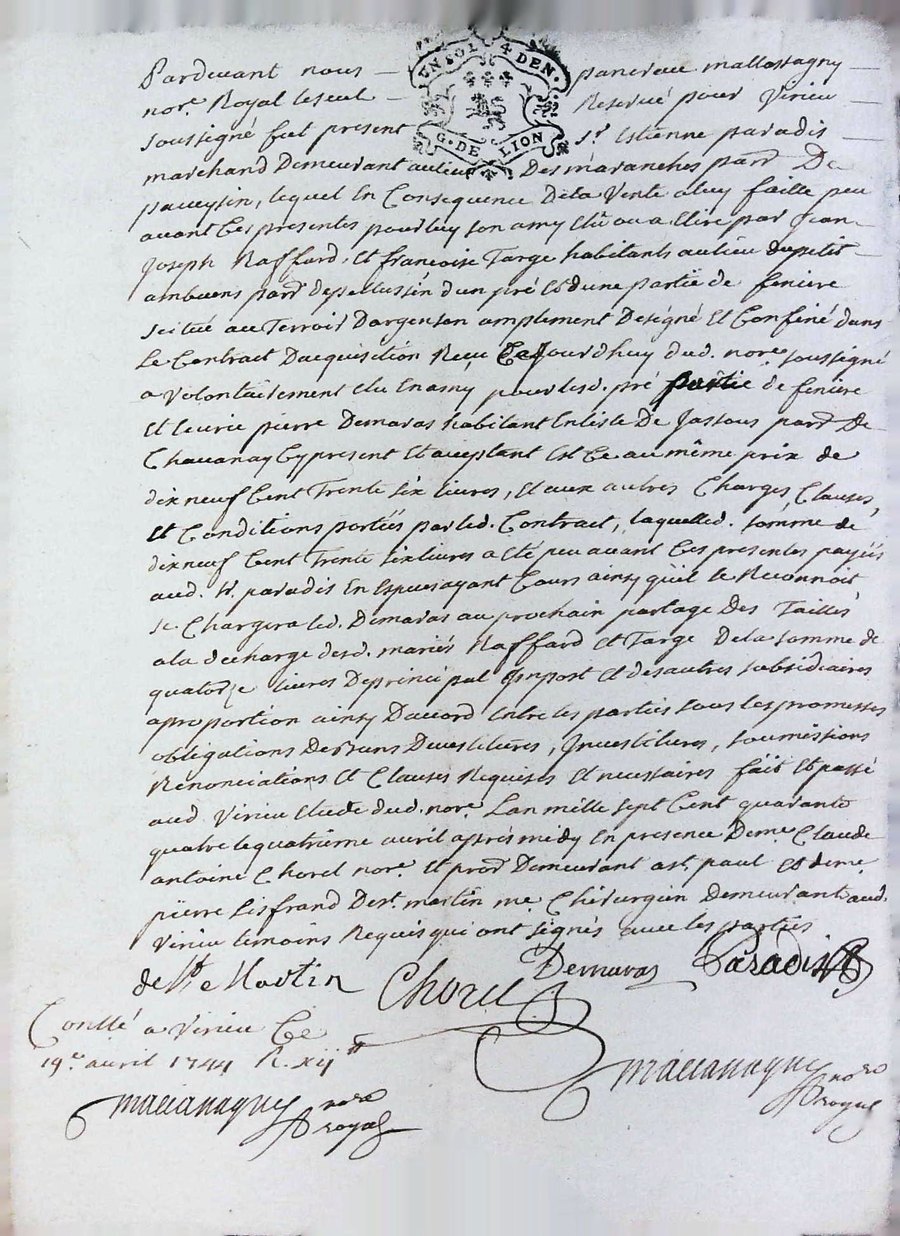 UN SOL 4 DEN.
G. DE LION
Pardevant nous pancrace
nore. Royal le seul Reservé pour Virieu
soussigné fut present sr. Estienne paradis
marchand Demeurant au lieu Des maranches parr. De
paveysin, lequel En Consequence Dela Vente a luy faitte peu
avant Ces presentes pour luy son amy Elu ou a Elire par Jean
Joseph Raffard, Et francoise Targe habitants au lieu du petit
ambuens parr. de pellussin d'un pré Et d'une partie de feniere
scitué au Terroir Dargenson amplement Designé Et Confiné dans
Le Contract Dacquisition Reçu Cejourdhuy dud. nore. soussigné
a Volontairement Elu En amy pour lesd. pré partie de feniere
Et Curie pierre Demaras habitant En liste De Jassous parr. De
Chavanay Cy present Et acceptant Et Ce au même prix de
dix neuf Cent Trente six livres, Et aux autres Charges, Clauses,
Et Conditions portées par led. Contract, laquelled. somme de
dix neuf Cent Trente six livres a été peu avant Ces presentes payées
aud. sr. paradis En Especes ayant Cours ainsy qu'il le Reconnoit
se Chargera led. Demaras au prochain partage Des Tailles
a la decharge desd. mariés Raffard et Targe De la somme de
quatorze livres De principal Impost Et des autres subsidiaires
a proportion ainsy Daccord Entre les parties sous les promesses
obligations De Biens Devestitures, Investitures, soumissions
Renonciations Et Clauses Requises Et necessaires fait Et passé
aud Virieu Etude dud. nore. Lan mille sept Cent quarante
quatre le quatrième avril apprés midy En presence De me. Claude
antoine Chorel nore. Et procr Demeurant a st. paul Et de me.
pierre Lisfrand De st. martin me. Chirurgien Demeurant aud.
Virieu temoins Requis qui ont signés avec les parties
de St Martin Chorel Demaras Paradis
Conllé a Virieu Ce
19e. avril 1744 R. xij tt
nore royal
nore royal